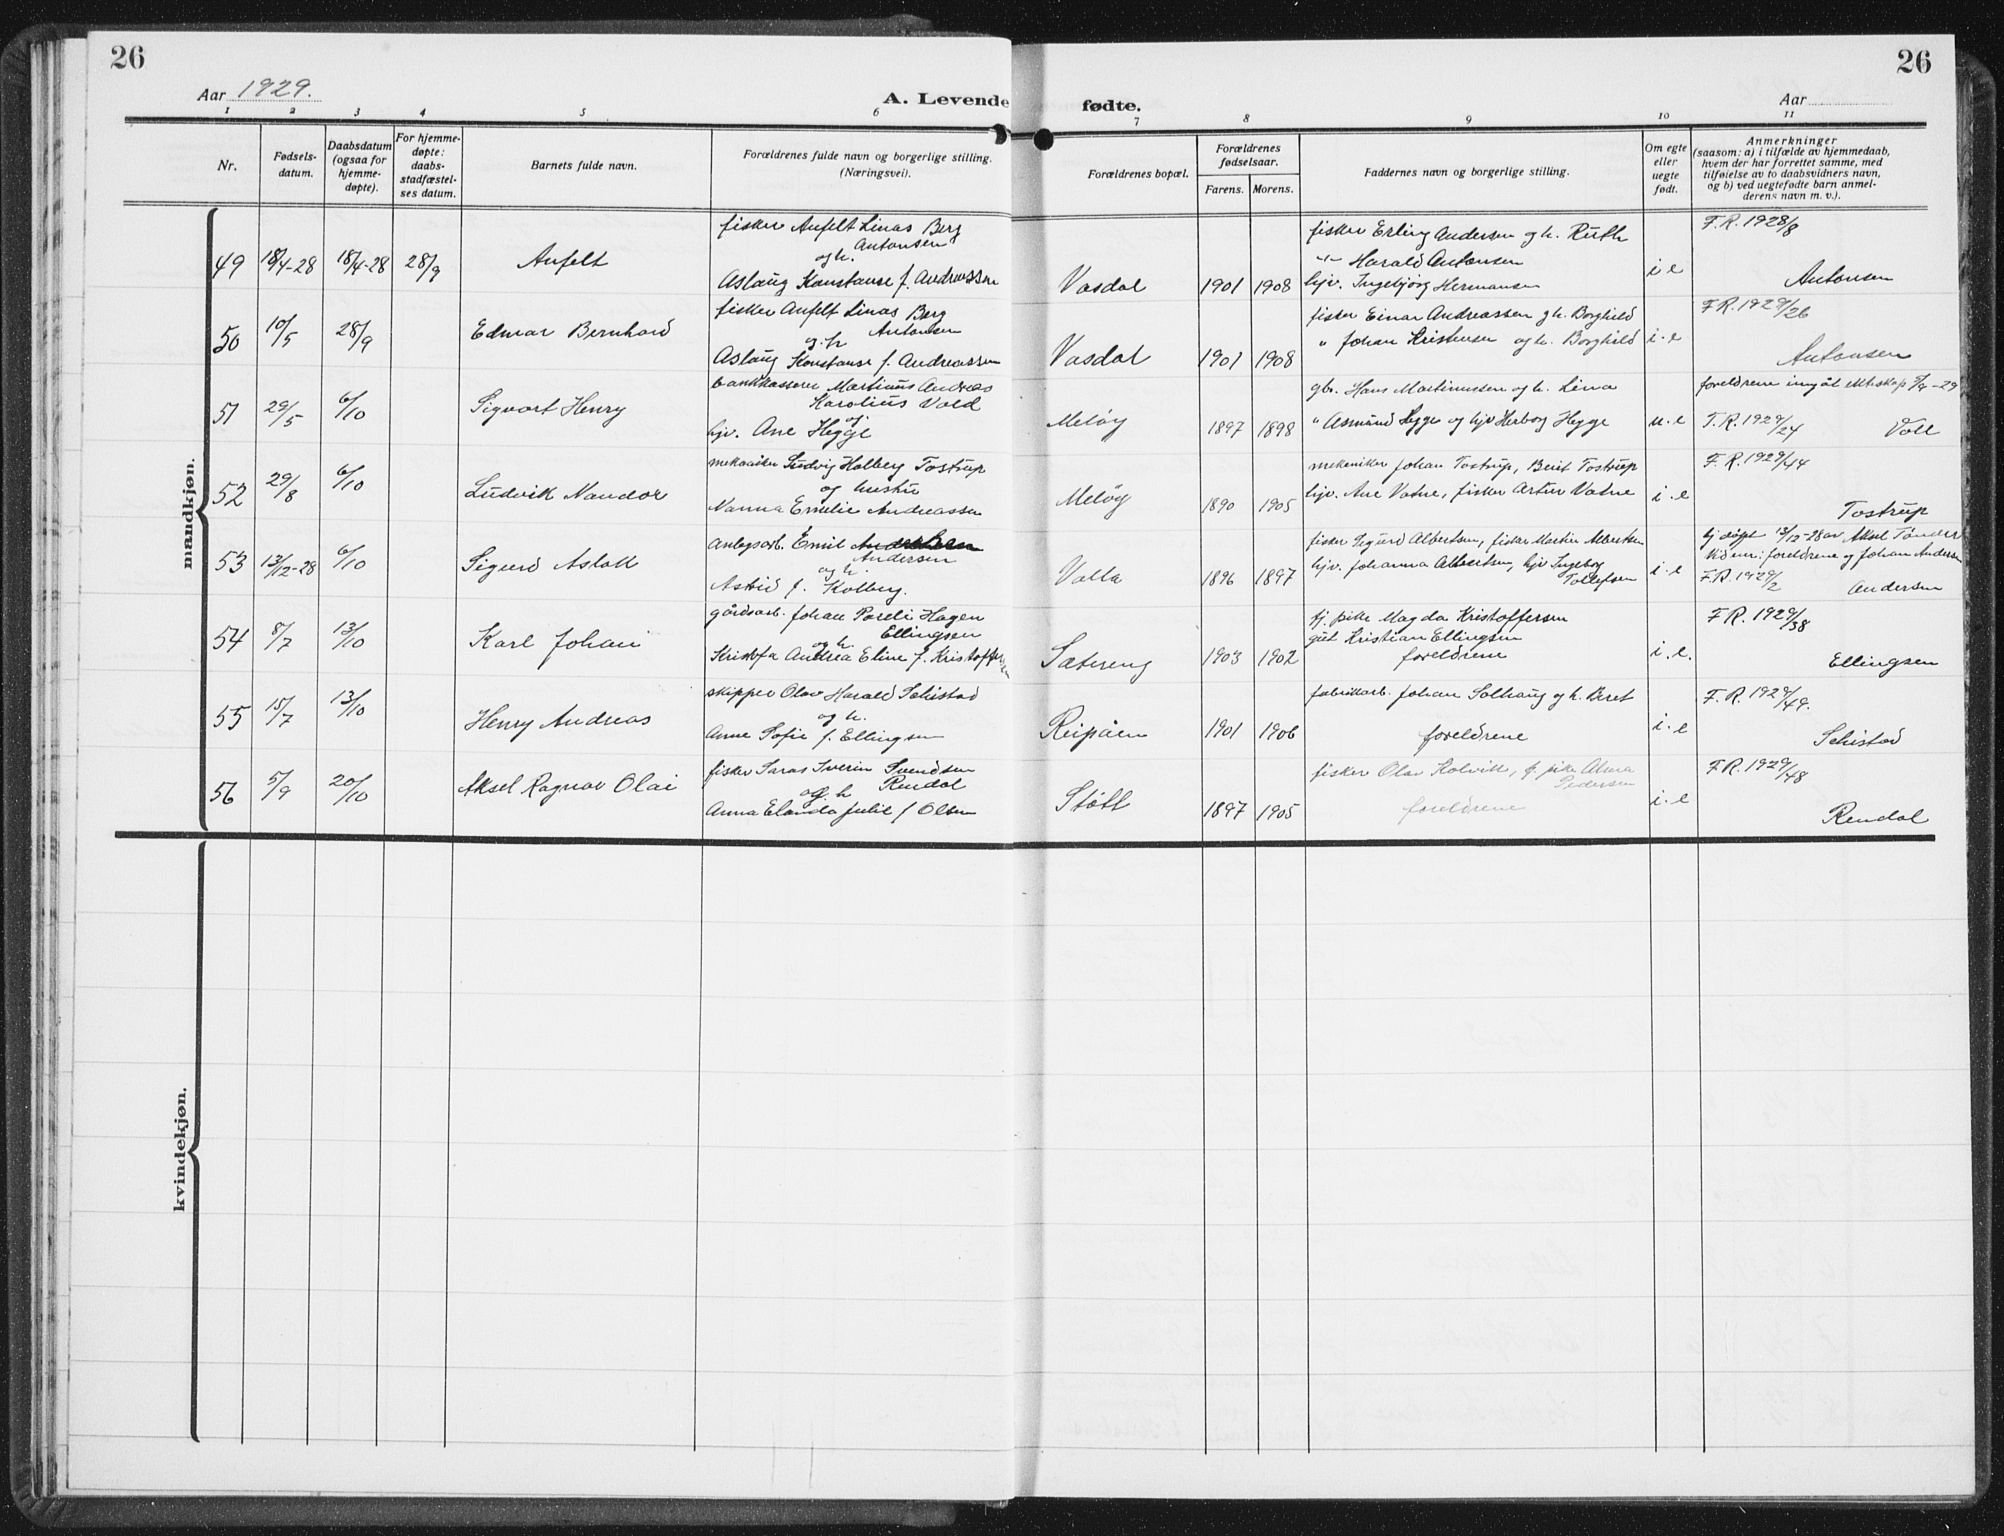 26
26
Aar 1929.
A. Levende fødte.
Aar
1 2 3 4 5 6 7 8 9 10 11
Nr.
Fødsels-
datum.
Daabsdatum
(ogsaa for
hjemme-
døpte).
For hjemme-
døpte:
daabs-
stadfæstel-
ses datum.
Barnets fulde navn.
Forældrenes fulde navn og borgerlige stilling.
(Næringsvei).
Forældrenes bopæl.
Forældrenes
fødselsaar.
Farens. Morens.
Faddernes navn og borgerlige stilling.
Om egte
eller
uegte
født.
Anmerkninger
(saasom: a) i tilfælde av hjemmedaab,
hvem der har forrettet samme, med
tilføielse av to daabsvidners navn,
og b) ved uegtefødte barn anmel-
derens navn m. v.).
mandkjøn.
49 18/4-28 18/4-28 28/9 Anfelt
fisker Anfelt Linas Berg
Antonsen
og h.
Aslaug Konstanse f. Andreassen
Vasdal 1901 1908
fisker Erling Andersen og h. Ruth
-"- Harald Antonsen
hjv. Ingebjørg Hermansen
i e
F.R. 1928/8
Antonsen
50 10/5 28/9 Edmar Bernhard
fisker Anfelt Linas Berg
Antonsen
og h
Aslaug Konstanse f. Andreassen
Vasdal 1901 1908
fisker Einar Andreassen og h. Borghild
" Johan Kristensen og h. Borghild
i e
F.R. 1929/26
Antonsen
51 29/5 6/10 Sigvart Henry
bankkasserer Martinus Andreas
Karolius Vold
og
hjv. Ane Hegge
Meløy 1897 1898
gbr. Hans Martinussen og h. Lina
" Asmund Hegge og hjv Herborg Hegge
u. e
foreldrene inngåt ekteskap
F.R. 1929/24
52 29/8 6/10 Ludvik Nandor
mekaniker Ludvig Holberg Tostrup
og hustru
Nanna Emelie Andreassen
Meløy 1890 1905
mekaniker Johan Tostrup, Berit Tostrup
hjv. Ane Vatne, fisker Artur Vatne
i. e
F.R. 1929/44
Tostrup
53 13/12-28 6/10 Sigurd Aslak
anlegsarb. Emil
Andersen
og h.
Astrid f. Kolberg.
Valla 1896 1897
fisker Sigurd Albertsen, fisker Martin Albertsen
hjv. Johanna Albertsen, hjv Ingeborg
Tollefsen
i. e
hj døpt 13/12-28 av Aksel Tønder
Vidner: foreldrene og Johan Andersen
F.R. 1929/2
Andersen
54 8/7 13/10 Karl Johan
gårdsarb. Johan Pareli Hagen
Ellingsen
og h.
Kristofa Andrea Eline f. Kristoffersen
Sætereng 1903 1902
tj. pike Magda Kristoffersen
gut Kristian Ellingsen
foreldrene
i. e.
F.R. 1929/38
Ellingsen
55 15/7 13/10 Henry Andreas
skipper Olav Harald Schistad
og h.
Anne Sofie f. Ellingsen
Reipåen 1901 1906
fabrikkarb. Johan Solhaug og h. Beret
foreldrene
i. e
F.R. 1929/49.
Schistad
56 5/9 20/10 Aksel Ragnar Olai
fisker Saras Iverin Svendsen
Rendal
og h
Anna Elanda Julie f Olsen
Støtt 1897 1905
fisker Olav Kolvik, tj. pike Alma
Pedersen
foreldrene
i. e
F.R. 1929/48
Rendal
kvindekjøn.